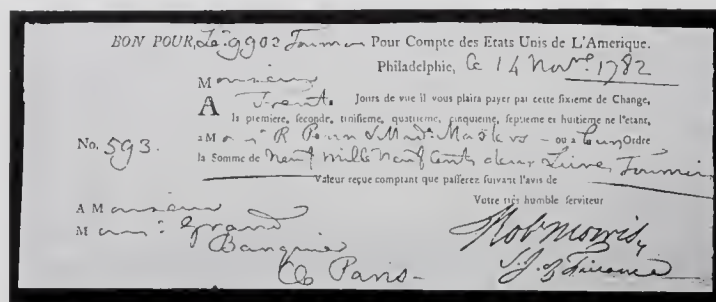 BON POUR, Le: 9902 Tournois Pour Compte des Etats Unis de L'Amerique.
Philadelphie, Le 14 Novr. 1782
Monsieur
A Trente Jours de vue il vous plaira payer par cette sixieme de Change,
la premiere, seconde, troisieme, quatrieme, cinquieme, septieme et huitieme ne l'etant,
No. 593. a R ou a Leur Ordre
la Somme de Neuf mille Neuf Cents deux Livres Tournois
Valeur reçue comptant que passerez suivant l'avis de
Votre très humble serviteur
A Monsieur
Monsr. Grand
Banquier
a Paris -
Rob Morris
S. J. of Finance